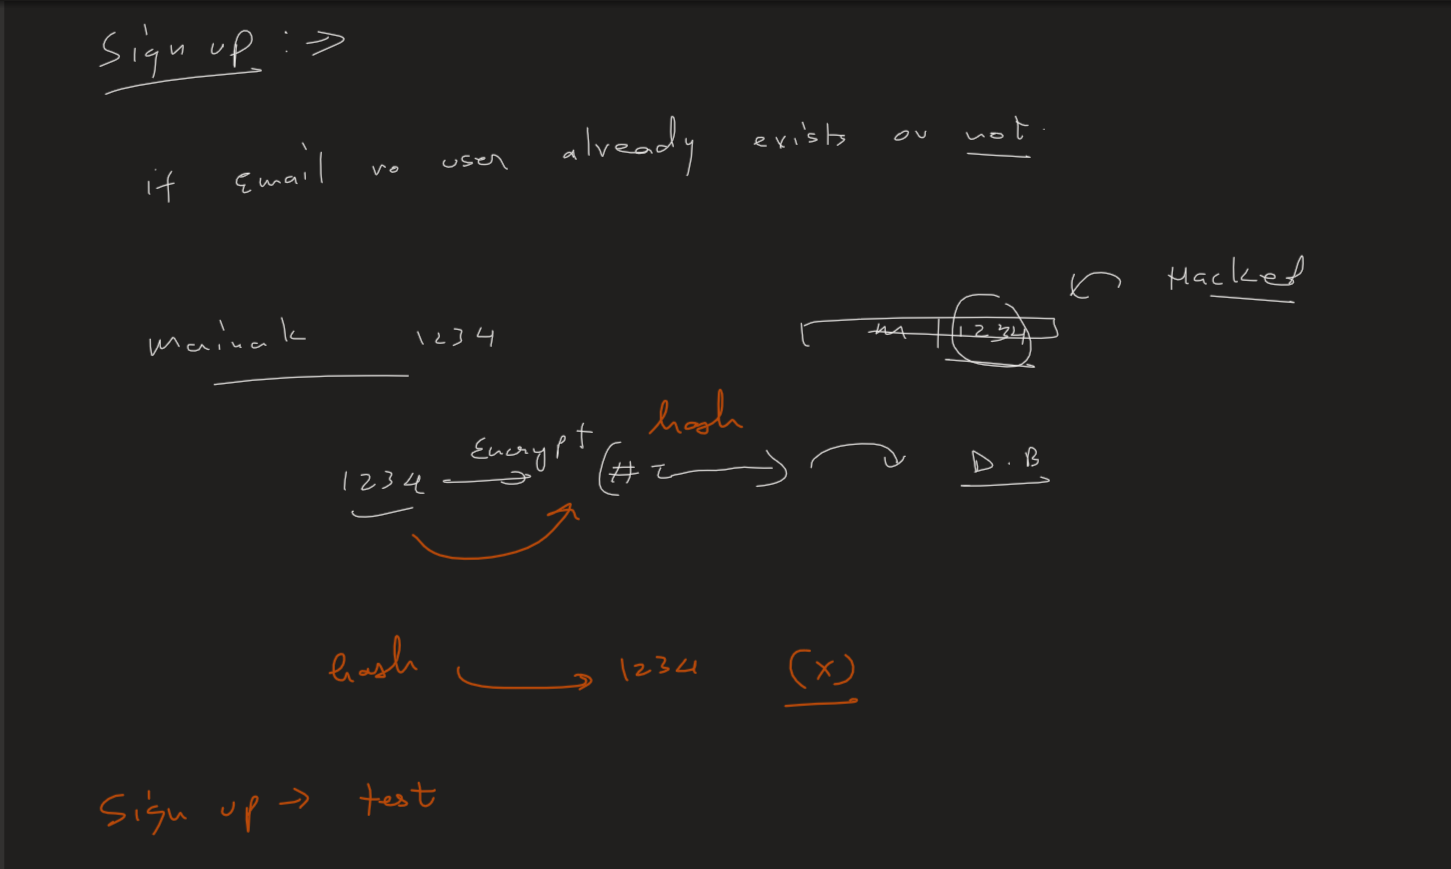 Sign up :⇒
if Email ro user already exists or not.
Hacked
Mainak 1234 m 1234
hash
1234 Encrypt (# ) D.B
hash → 1234 (x)
Sign up → test